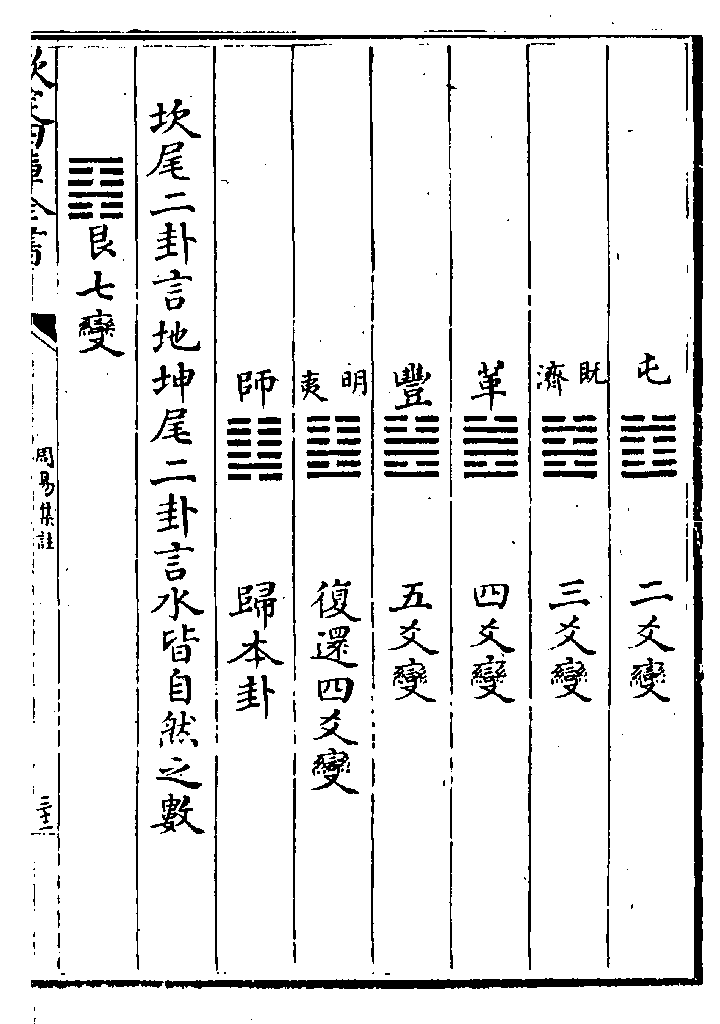 屯䷂二爻變
既濟䷾三爻變
革䷰四爻變
豐䷶五爻變
明夷䷣復還四爻變
師䷆歸本卦
坎尾二卦言地坤尾二卦言水皆自然之數
䷳艮七變
欽定四庫全書
周易集註
三十二